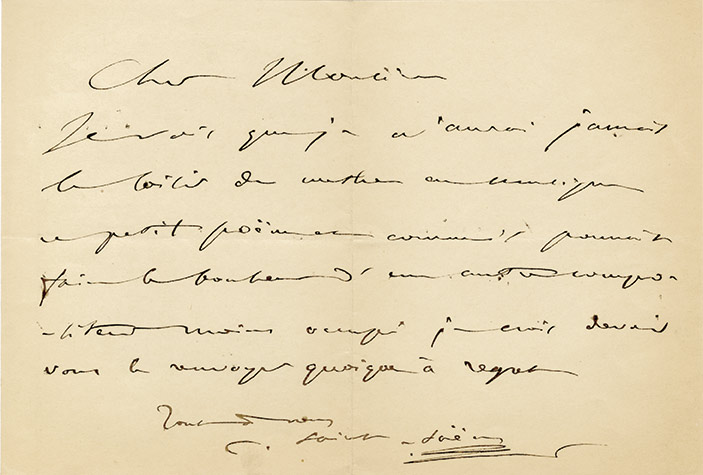 Cher Monsieur
Je vois que je n'aurai jamais
le loisir de mettre en musique
ce petit poëme et comme il pourrait
faire le bonheur d'un autre compo-
-siteur moins occupé je crois devoir
vous le renvoyer quoique à regret
Tout à vous
C. Saint-Saëns